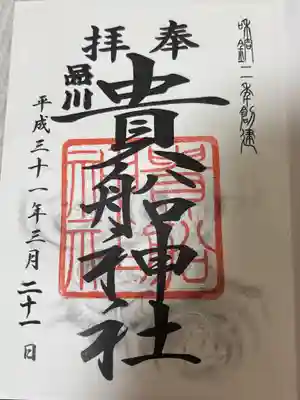 奉拝
和銅二年創建
品川
貴船神社
貴船神社
平成三十一年三月二十一日